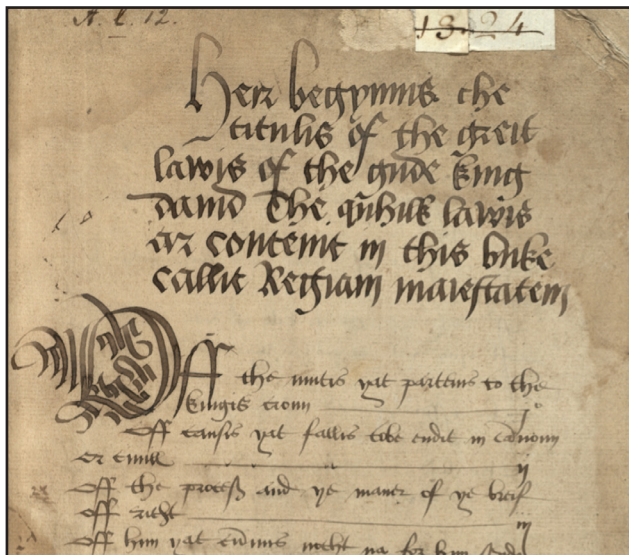 12.
1324
Heir begynnis the
titulis of the greit
lawis of the gude king
dauid The quhilk lawis
ar contenit in this buke
callit Regiam maiestatem
Off the mutis yat partenis to the
kingis croun j
Off causis yat fallis tobe endit in
or ciuill ij
Off the proceß and ye maner of ye breif
off richt iij
Off him yat cumis nocht na for him